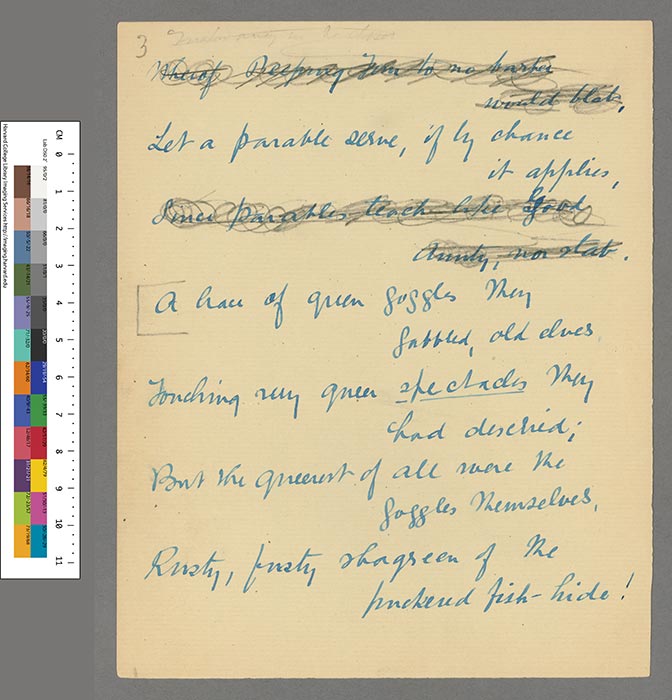 3
to no
would blab,
Let a parable serve, if by chance
it applies,
Since parables teach like good
Aunty, nor stab.
A brace of green goggles they
gabbled, old elves,
Touching very queer spectacles they
had descried;
But the queerest of all were the
goggles themselves,
Rusty, fusty shagreen of the
puckered fish-hide!
CM 0 1 2 3 4 5 6 7 8 9 10 11
Harvard College Library Imaging Services http://imaging.harvard.edu